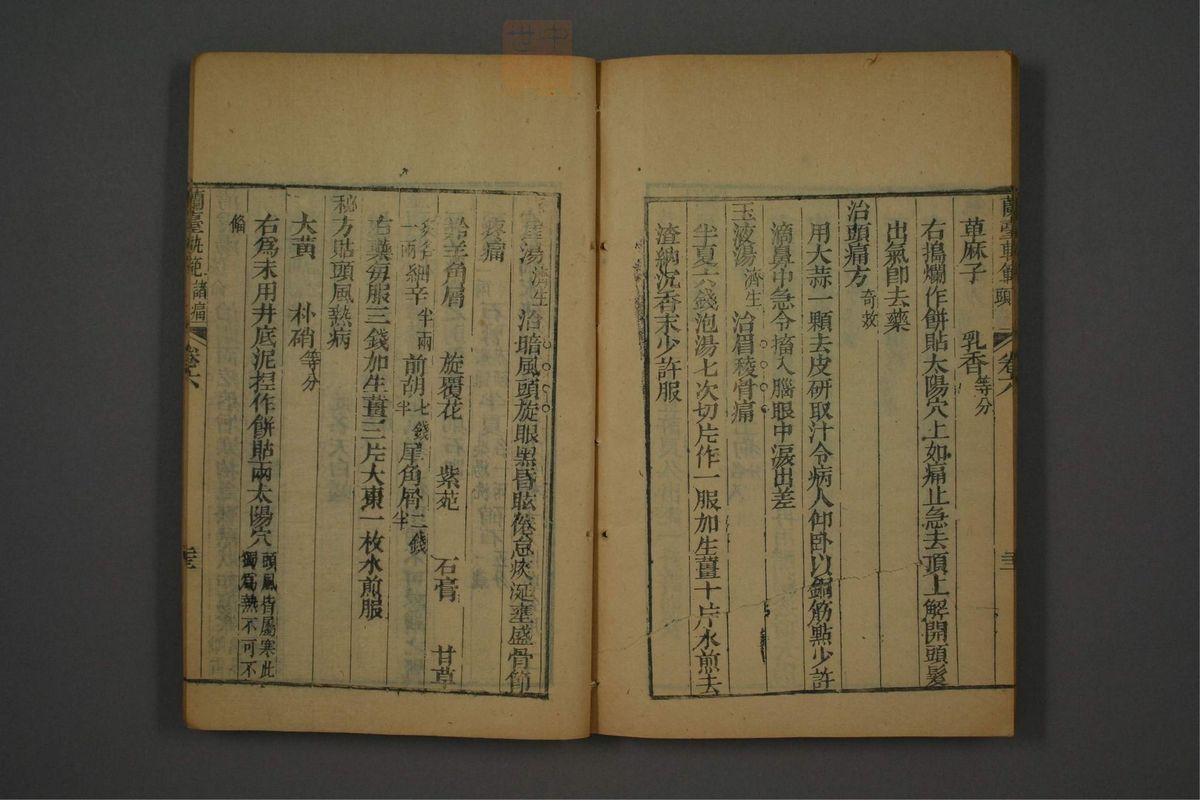 蘭臺軌範 頭 卷六 三十三
萆麻子 乳香等分
右搗爛作餅貼太陽穴上如痛止急去頂上解開頭髮
出氣卽去藥
治頭痛方奇效
用大蒜一顆去皮研取汁令病人仰卧以銅筋點少許
滴鼻中急令搐入腦眼中淚出差
玉液湯濟生 治眉稜骨痛
半夏六錢泡湯七次切片作一服加生薑十片水煎去
渣納沉香末少許服
湯濟生 治暗風頭旋眼黑昏眩倦怠痰涎壅盛骨節
疼痛
羊角屑 旋覆花 紫菀 石膏 甘草
炙各一兩 細辛半兩 前胡七錢半 犀角屑二錢半
右藥每服三錢加生薑三片大棗一枚水煎服
秘方貼頭風熱病
大黃 朴硝等分
右爲末用井底泥捏作餅貼兩太陽穴頭風皆屬寒此獨爲熱不可不
備
蘭臺軌範 諸痛 卷六